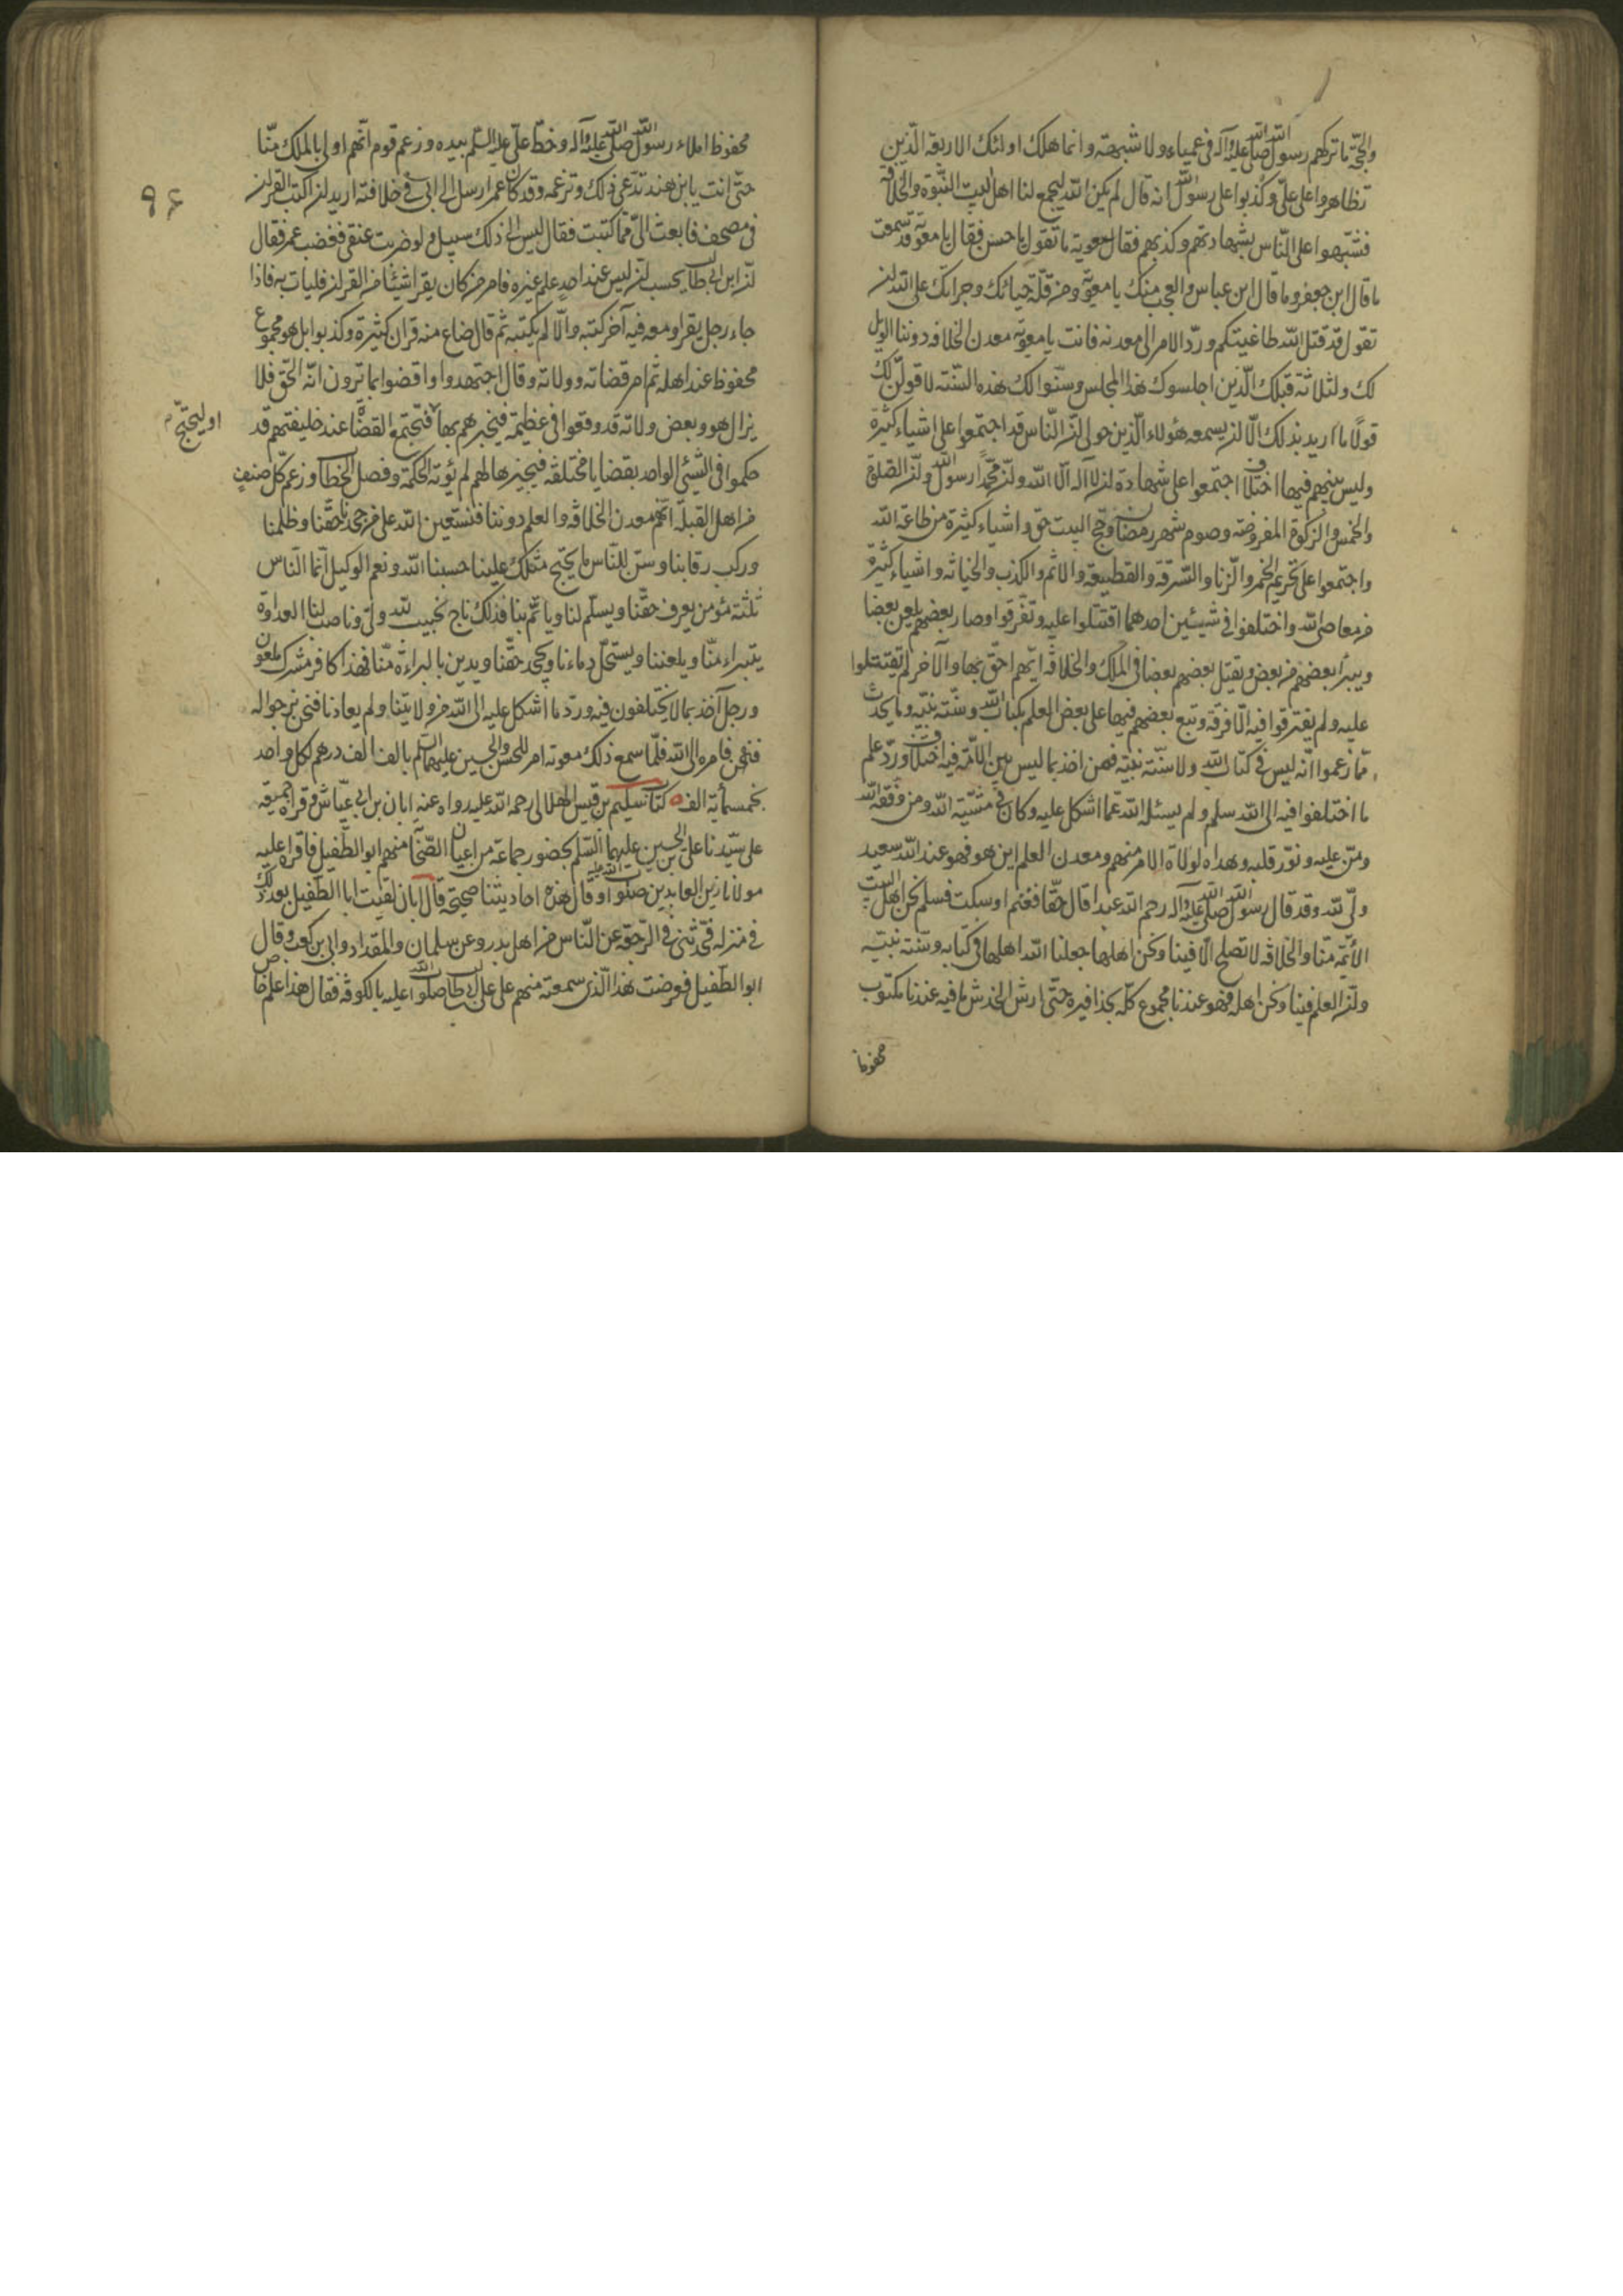 والحجّة ما تركهم رسول الله صلى الله عليه وآله في عمياء ولا شبهة وانما هلك اولئك الاربعة الّذين
تظاهروا على علىّ وكذبوا على رسول الله انه قال لم يكن الله ليجمع لنا اهل البيت النبّوة والخلافة
فشبّهوا على النّاس بشهادتهم وكذبهم فقال معوية ما تقول يا حسن فقال يا معوية قد سمعت
ما قال ابن جعفر وما قال ابن عباس والعجب منك يا معوية ومن قلّة حيائك وجراتك على الله ان
تقول قد قتل الله طاغيتكم وردّ الامر الى معدنه فانت يا معوية معدن الخلافة دوننا الويل
لك ولثلاثة قبلك الّذين اجلسوك هذا المجلس وسنّوا لك هذه السّنة لاقولنّ لك
قولًا ما اريد بذلك الّا ان يسمعه هؤلاء الّذين حولى انّ النّاس قد اجتمعوا على اشياء كثيرة
وليس بينهم فيها اختلاف اجتمعوا على شهادة ان لا اله الّا الله وانّ محمّدا رسول الله وانّ الصّلوة
والخمس والزكوة المفروضة وصوم شهر رمضان وحج البيت حق واشياء كثيرة من طاعة الله
واجتمعوا على تحريم الخمر والزنا والسّرقة والقطيعة والاثم والكذب والخيانة واشياء كثيرة
من معاصى الله واختلفوا في شيئين احدهما اقتتلوا عليه وتفرقوا وصار بعضهم يلعن بعضا
ويبرأ بعضهم من بعض ويقتل بعضهم بعضا في الملك والخلافة ايّهم احقّ بها والآخر لم يقتتلوا
عليه ولم يفترقوا فيه الّا فرقة وتبع بعضهم فيها على بعض العلم بكتاب الله وسنّة نبيّه وما يحدث
ممّا زعموا انّه ليس في كتاب الله ولا سنّة نبيّه فمن اخذ بما ليس بين الامّة فيه اختلاف وردّ علم
ما اختلفوا فيه الى الله سلم ولم يسئله الله عمّا اشكل عليه وكان في مشيّة الله ومن وفّقه الله
ومنّ عليه ونوّر قلبه وهداه لولاة الامر منهم ومعدن العلم اين هو فهو عند الله سعيد
ولىّ لله وقد قال رسول الله صلى الله عليه وآله رحم الله عبدا قال حقّا فغنم او سكت فسلم نحن اهل البيت
الائمّة منّا والخلافة لا تصلح الّا فينا ونحن اهلها جعلنا الله اهلها في كتابه وسنّة نبيّه
وانّ العلم فينا ونحن اهله فهو عندنا مجموع كلّه بحذافيره حتّى ارش الخدش ما فيه عندنا مكتوب
محفوظا
٩٤
محفوظ املاء رسول الله صلى الله عليه وآله وخطّ علىّ عليه السّلم بيده وزعم قوم انّهم اولى بالملك منّا
حتّى انت يا بن هند تدّعى ذلك وتزعمه وقد كان عمر ارسل الى ابى في خلافته اريد ان اكتب القران
في مصحف فابعث الىّ ممّا كتبت فقال ليس الى ذلك سبيل ولو ضربت عنقى فغضب عمر فقال
انّ ابن ابى طالب يحسب ان ليس عند احدٍ علم غيره فامر من كان يقرا شيئًا من القران فليات به فاذا
جاء رجل يقرا ومعه فيه آخر كتبه والّا لم يكتبه ثم قال ضاع منه قران كثيرة وكذبوا بل هو مجموع
محفوظ عند اهله ثم امر قضاته وولاته وقال اجتهدوا واقضوا بما ترون انّه الحق فلا
يزال هو وبعض ولاته قد وقعوا في عظيمة فيخبرهم بها فتجتمع القضاة عند خليفتهم قد
او ليحتجّ م
حكموا في الشيئ الواحد بقضايا مختلفة فيجيزها لهم لم يؤته الحكمة وفصل الخطاب وزعم كلّ صنفٍ
من اهل القبلة انّهم معدن الخلافة والعلم دوننا فنستعين الله على من جحدنا حقّنا وظلمنا
وركب رقابنا وسنّ للنّاس ما يحتج مثلك علينا حسبنا الله ونعم الوكيل انّما النّاس
ثلثة مؤمن يعرف حقّنا ويسلّم لنا وياتمّ بنا فذلك ناج نجيب لله ولىّ وناصب لنا العداوة
يتبراء منّا ويلعننا ويستحلّ دماءنا ويجحد حقّنا ويدين بالبراءة منّا فهذا كافر مشرك ملعون
ورجل آخذ بما لا يختلفون فيه وردّ ما اشكل عليه الى الله من ولايتنا ولم يعادنا فنحن نرجو اله
فنحن فامره الى الله فلمّا سمع ذلك معوية امر للحسن والحسين عليهما السلم بالف الف درهم لكل واحد
بخمسمأية الف ه كتاب سليم بن قيس الهلالى رحمه الله عليه رواه عنه ابان بن ابى عيّاش وقراه جميعه
على سيّدنا على بن الحسين عليهما السّلم بحضور جماعة من اعيان الصّحابة منهم ابو الطّفيل فاقراه عليه
مولانا زين العابدين صلوات الله عليه وقال هذه احاديثنا صحيحة قال ابان لقيت ابا الطفيل بعد ذلك
في منزله فحدّثنى في الرّجعة عن النّاس من اهل بدر وعن سلمان والمقداد وابى بن كعب وقال
ابو الطّفيل فعرضت هذا الّذى سمعته منهم على على بن ابى طالب صلوات الله عليه بالكوفة فقال هذا علم خاص